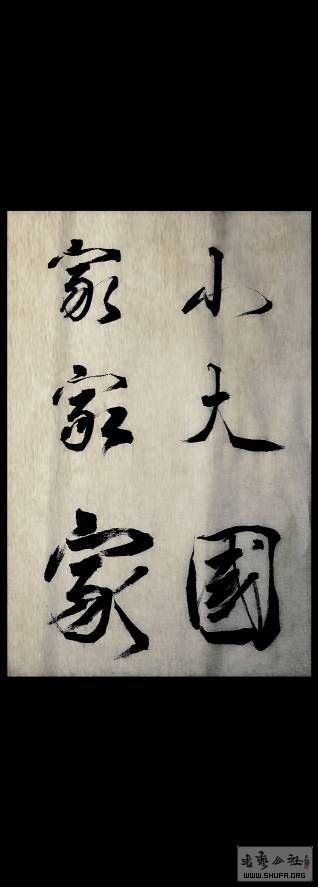 小家
大家
國家
书藝公社
WWW.SHUFA.ORG